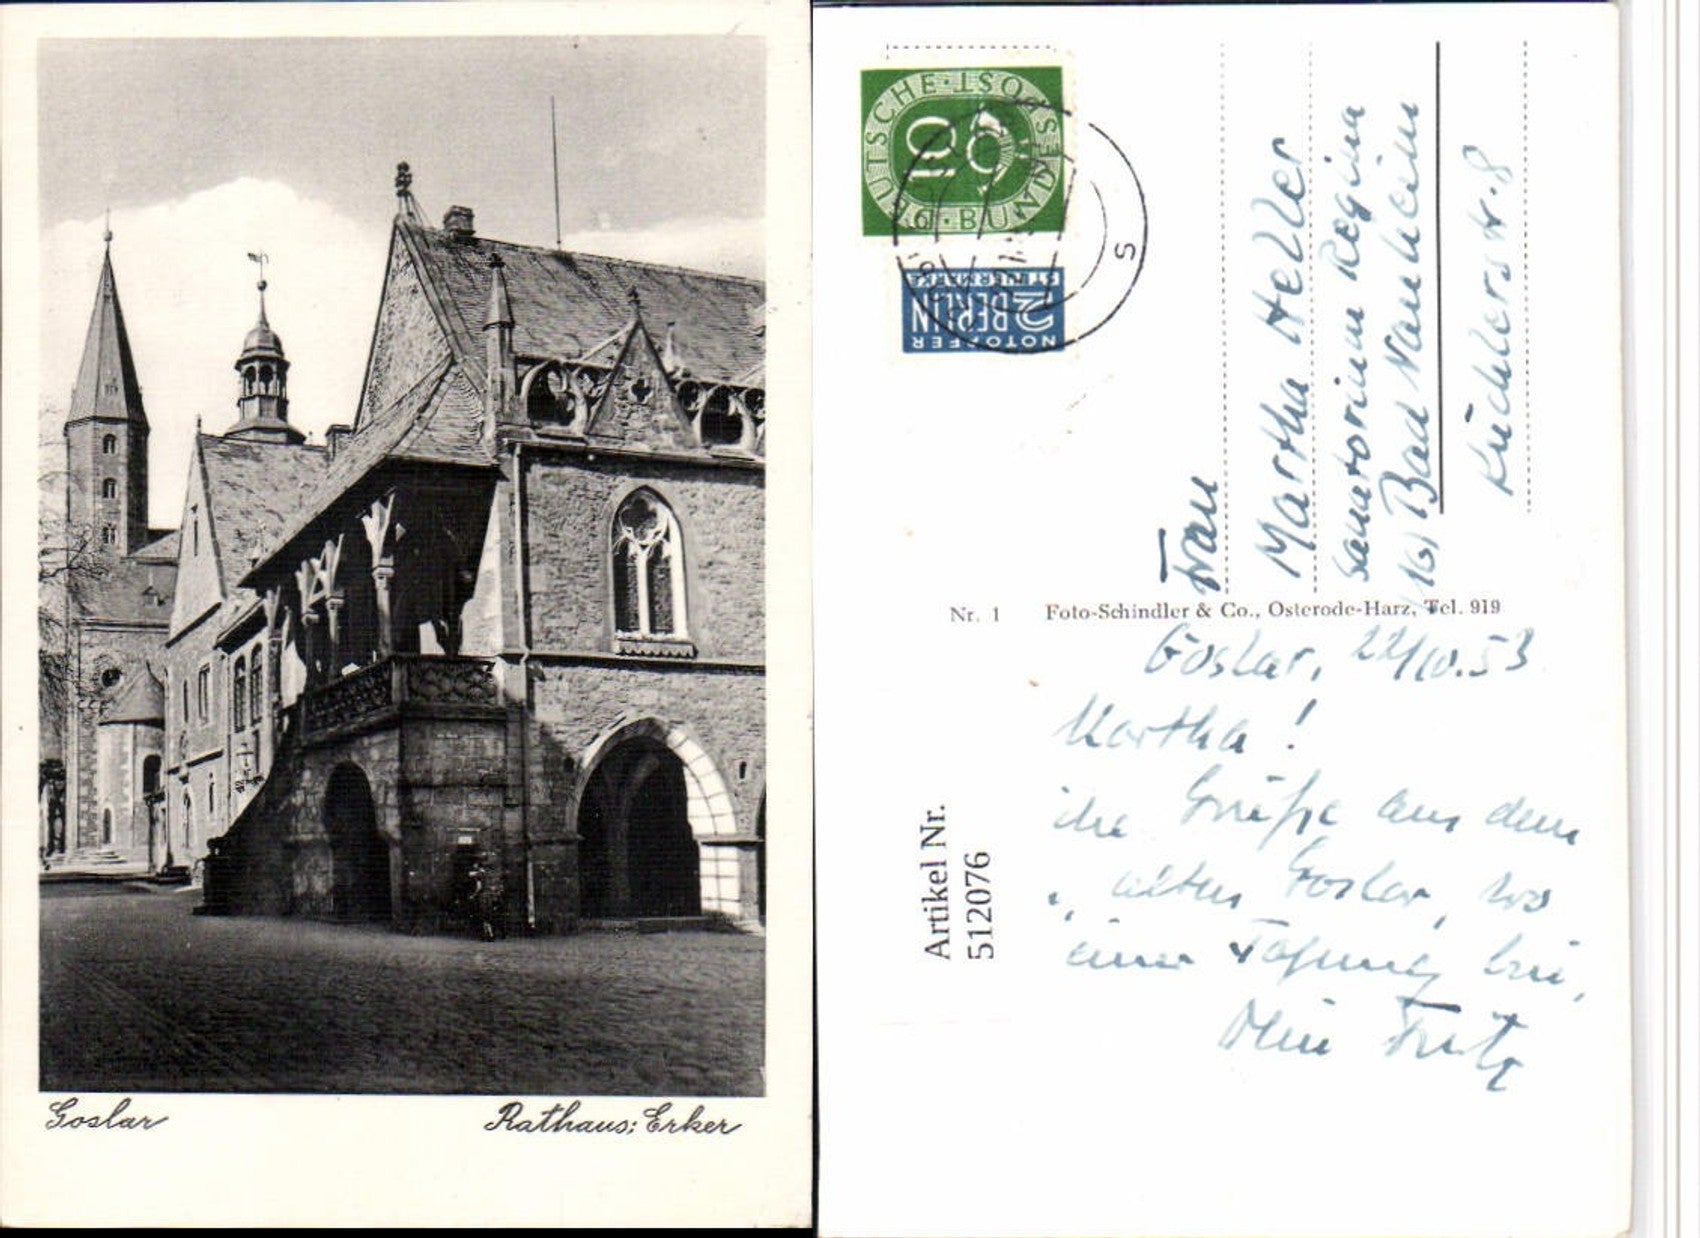 Goslar
Rathaus: Erker
DEUTSCHE · POST
10
BUNDES
NOTOPFER
2 BERLIN
STEUERMARKE
Frau
Martha Heller
Sanatorium Regina
16) Bad Nauheim
Küchlerstr. 8
Nr. 1 Foto-Schindler & Co., Osterode-Harz, Tel. 919
Goslar, 22/10.53
Martha!
Grüße aus dem
alten Goslar, wo
einer Tagung bin,
Dein Fritz
Artikel Nr.
512076